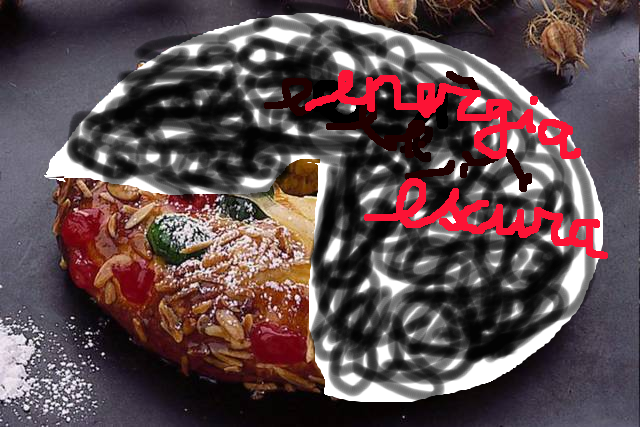 energia
escura